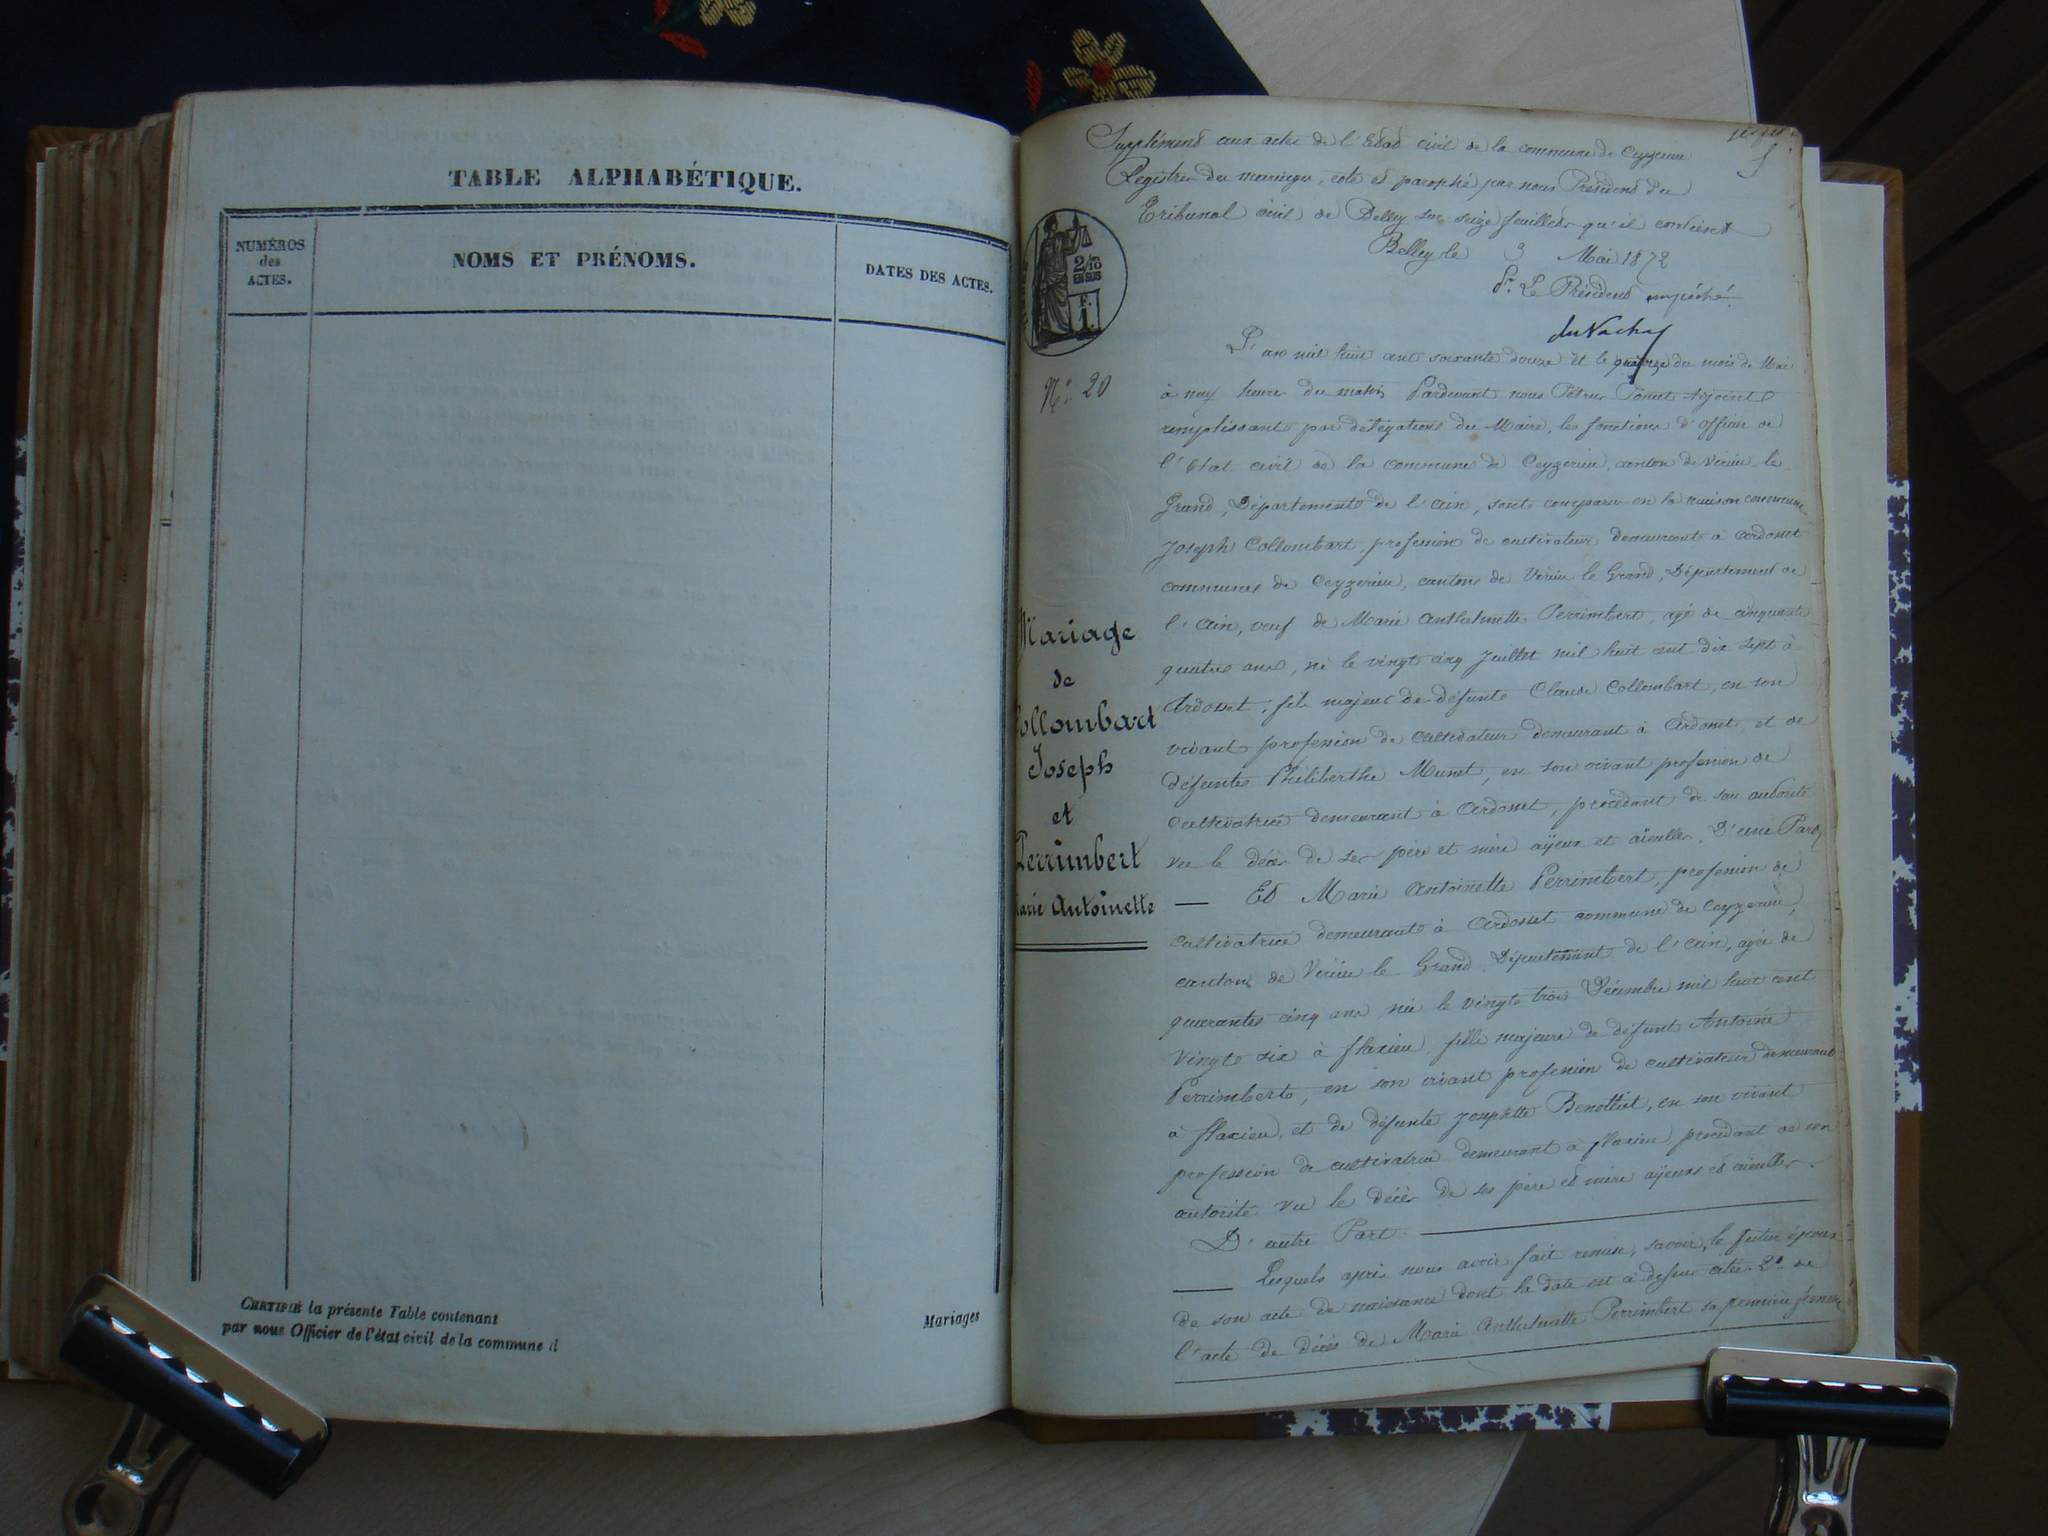 TABLE ALPHABÉTIQUE.
NUMÉROS
des
ACTES.
NOMS ET PRÉNOMS.
DATES DES ACTES.
CERTIFIÉ la présente Table contenant
par nous Officier de l'état civil de la commune d
Mariages
Supplément aux actes de l'Etat civil de la commune de Ceyzerieu
Registre des mariages, coté et paraphé par nous Président du
Tribunal civil de Belley sur seize feuillets qu'il contient
Belley le 3 Mai 1872
Pr. Le Président empêché
2/10
EN SUS
F.
1.
N° 20
Mariage
de
Collombart
Joseph
et
Perrimbert
Marie Antoinette
L'an mil huit cent soixante douze et le quatorze du mois de Mai
à neuf heures du matin Pardevant nous Pétrus Adjoint
remplissant par délégation du Maire, les fonctions d'officier de
l'Etat civil de la commune de Ceyzerieu, canton de Virieu le
Grand, Département de l'Ain, sont comparu en la maison commune
Joseph Collombart, profession de cultivateur demeurant à Ardosset
commune de Ceyzerieu, canton de Virieu le Grand, Département de
l'Ain, veuf de Marie Anthelmette Perrimbert, agé de cinquante
quatre ans, né le vingt cinq Juillet mil huit cent dix sept à
Ardosset, fils majeur de défunt Claude Collombart, en son
vivant profession de cultivateur demeurant à Ardosset, et de
défunte Philiberthe Munet, en son vivant profession de
cultivatrice demeurant à Ardosset, procédant de son autorité
vu le décès de ses père et mère ayeux et aïeulles, D'une Part
Et Marie Antoinette Perrimbert, profession de
cultivatrice demeurant à Ardosset commune de Ceyzerieu,
canton de Virieu le Grand, Département de l'Ain, agée de
quarante cinq ans, née le vingt trois Décembre mil huit cent
vingt six à flaxieu, fille majeure de défunt Antoine
Perrimbert, en son vivant profession de cultivateur demeurant
à flaxieu, et de défunte Josephette Benottiet, en son vivant
profession de cultivatrice demeurant à flaxieu, procédant de son
autorité vu le décès de ses père et mère ayeux et aïeulles.
D'autre Part
Lesquels après nous avoir fait remise, savoir, le futur époux
de son acte de naissance dont la date est à dessus citée 2° de
l'acte de décès de Marie Anthelmette Perrimbert sa première femme